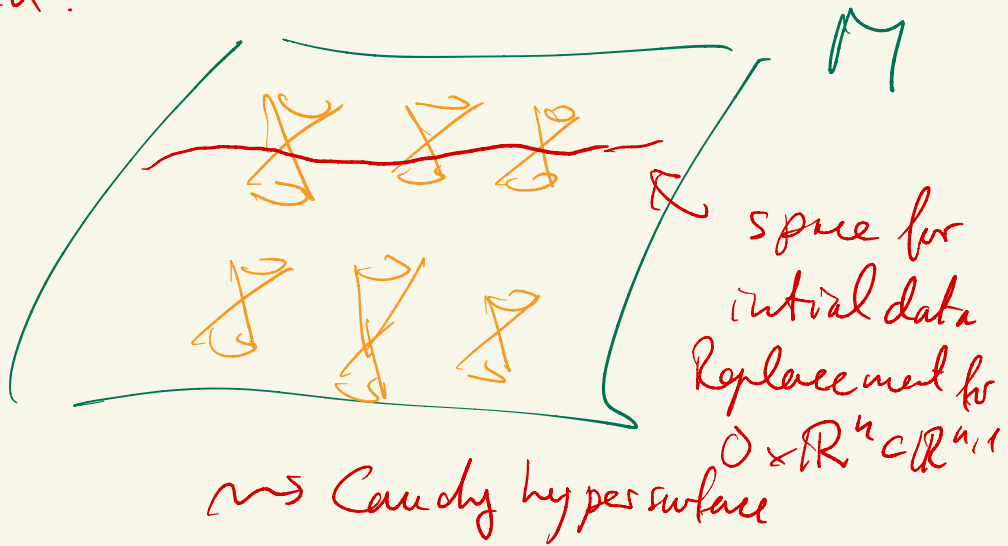 M
space for
intial data
Replacement for
0 × ℝⁿ ⊂ ℝⁿ,¹
⇝ Cauchy hypersurface